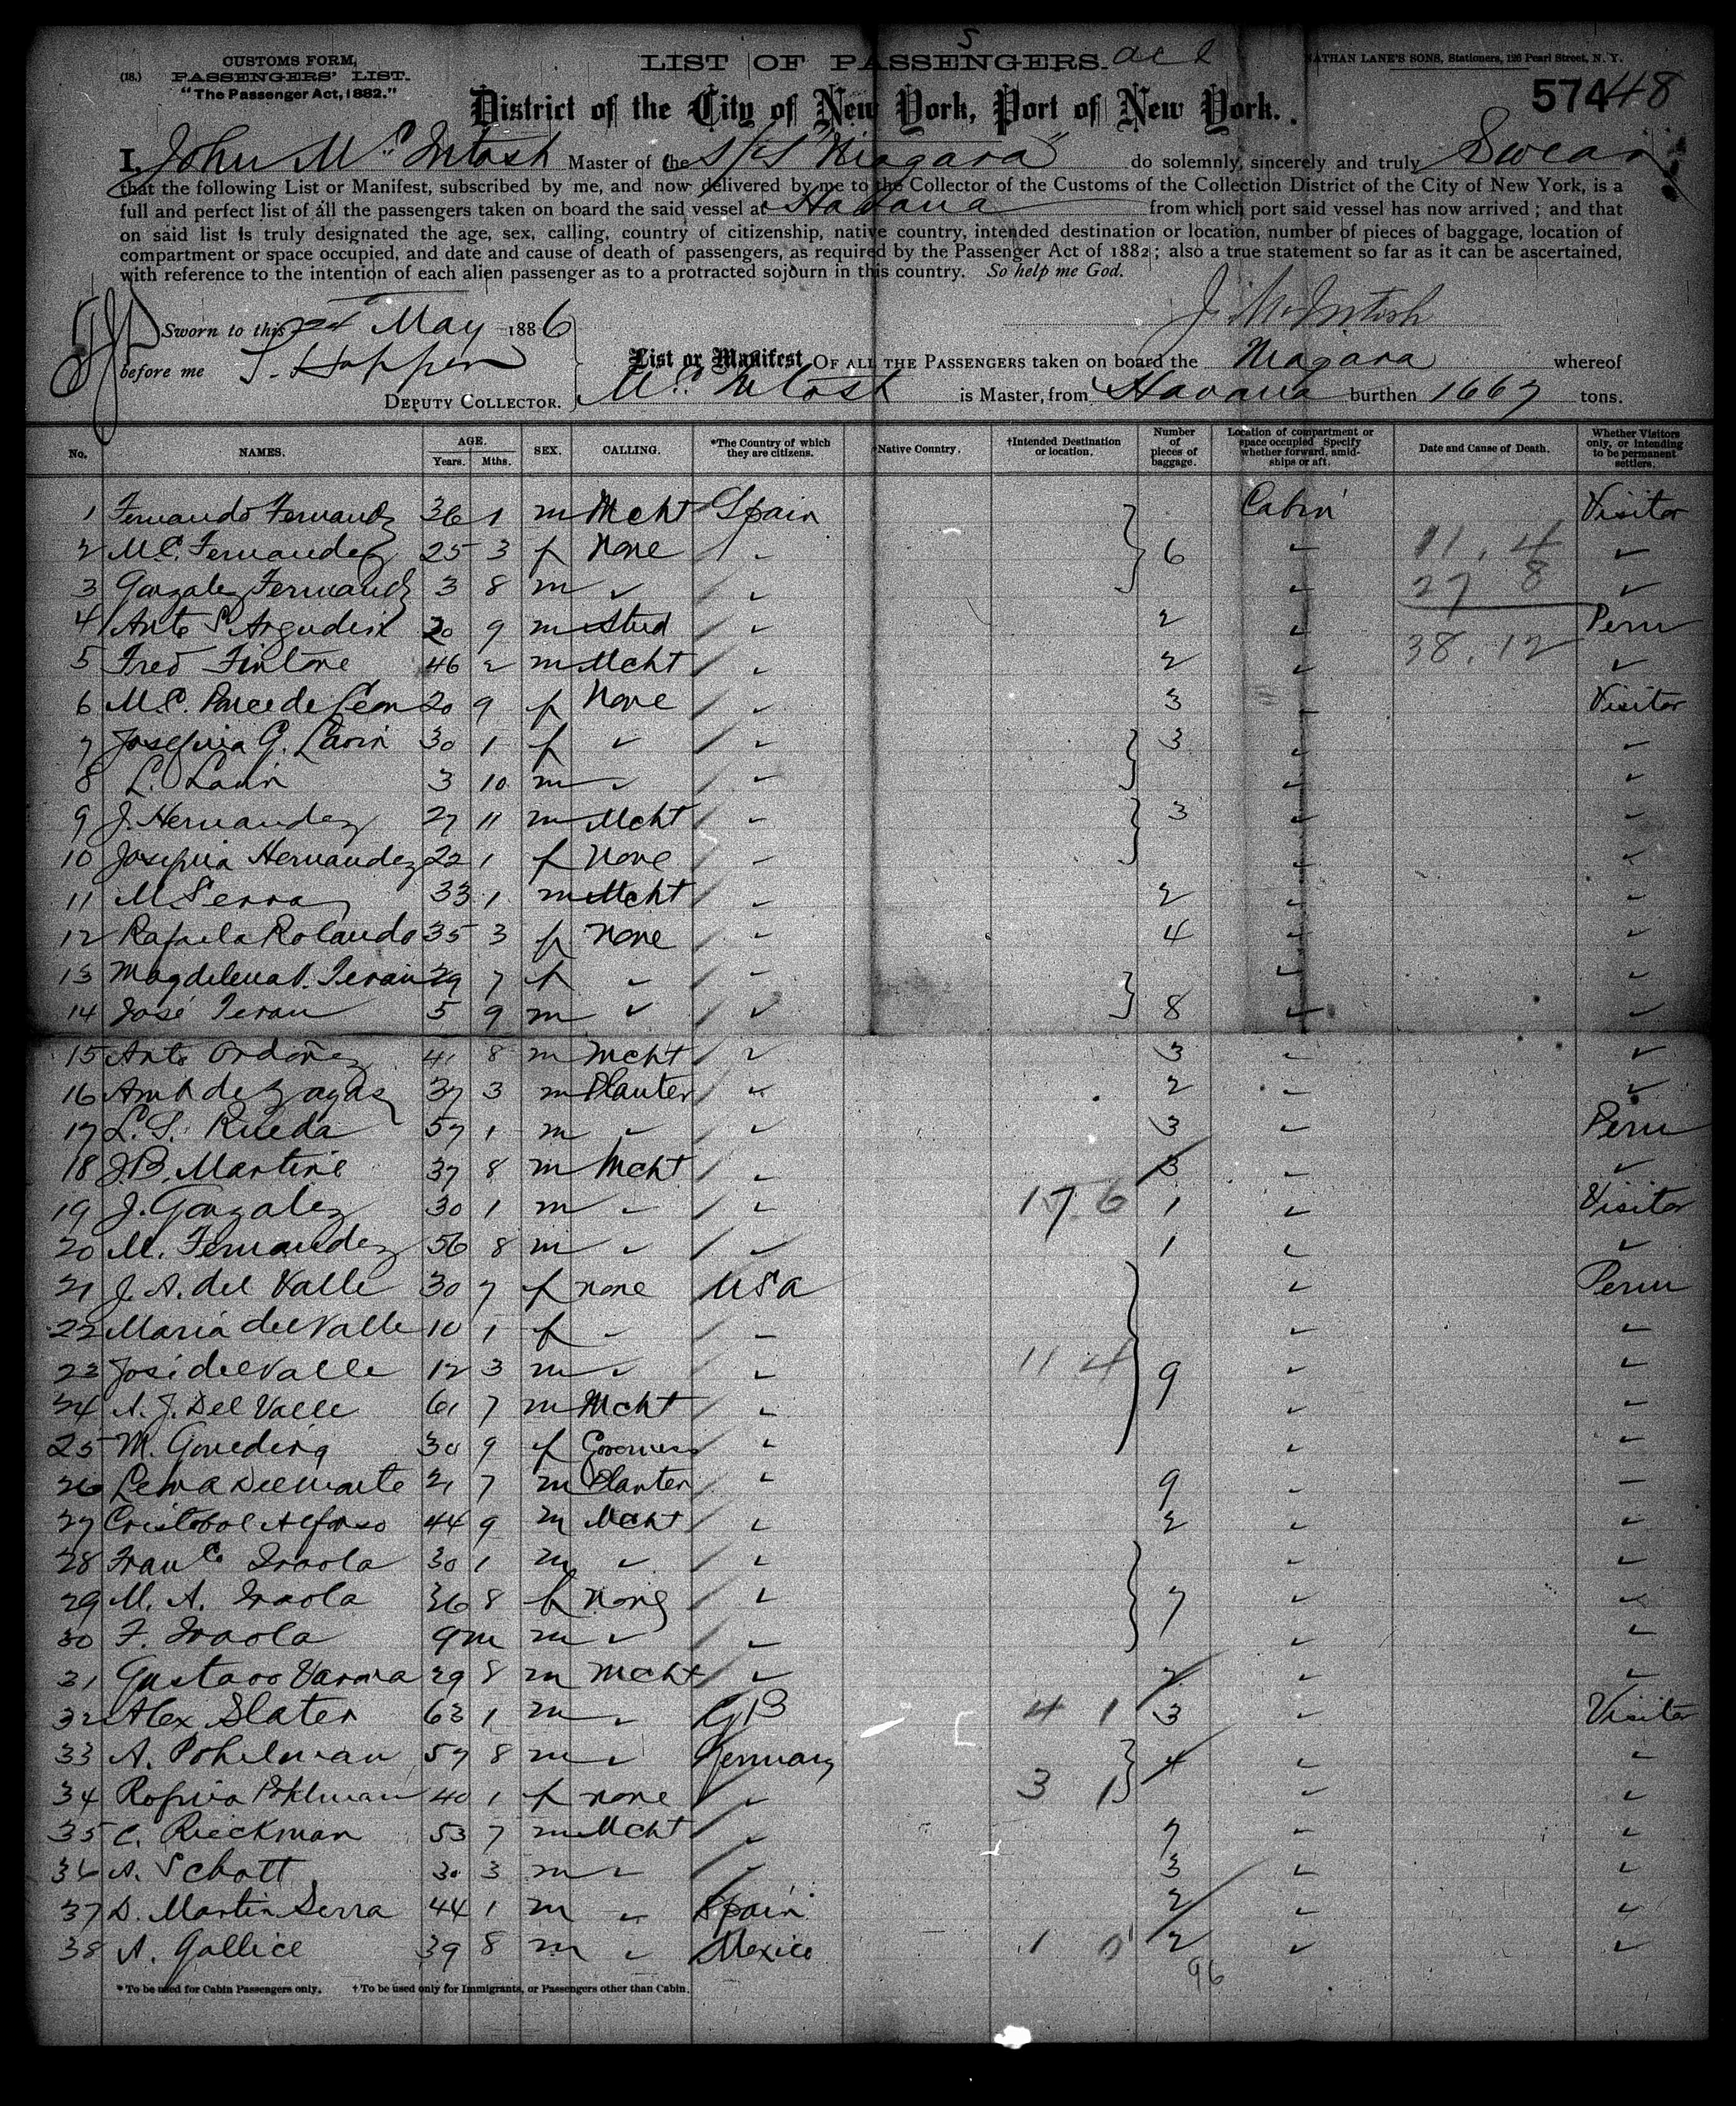 5
CUSTOMS FORM,
(18.) PASSENGERS' LIST.
"The Passenger Act, 1882."
LIST OF PASSENGERS.
NATHAN LANE'S SONS, Stationers, 126 Pearl Street, N. Y.
574 48
District of the City of New York, Port of New York.
I, John McIntosh Master of the S/S "Niagara" do solemnly, sincerely and truly Swear
that the following List or Manifest, subscribed by me, and now delivered by me to the Collector of the Customs of the Collection District of the City of New York, is a
full and perfect list of all the passengers taken on board the said vessel at Havana from which port said vessel has now arrived; and that
on said list is truly designated the age, sex, calling, country of citizenship, native country, intended destination or location, number of pieces of baggage, location of
compartment or space occupied, and date and cause of death of passengers, as required by the Passenger Act of 1882; also a true statement so far as it can be ascertained,
with reference to the intention of each alien passenger as to a protracted sojourn in this country. So help me God.
Sworn to this May 1886 J. McIntosh
before me
DEPUTY COLLECTOR.
List or Manifest OF ALL THE PASSENGERS taken on board the Niagara whereof
McIntosh is Master, from Havana burthen 1667 tons.
No. NAMES. AGE. Years. Mths. SEX. CALLING. *The Country of which they are citizens. *Native Country. †Intended Destination or location. Number of pieces of baggage. Location of compartment or space occupied Specify whether forward, amidships or aft. Date and Cause of Death. Whether Visitors only, or intending to be permanent settlers.
1 Fernando Fernandz 36 1 m Mcht Spain Cabin Visitor
2 M.C. Fernandez 25 3 f None " 6 " 11.4 "
3 Gonzalez Fernandz 3 8 m " " " 27 8 "
4 Anto S Argudin 20 9 m Stud " 2 " Perm
5 Fred Fintore 46 2 m Mcht " 2 " 38.12 "
6 M.C. Ponce de Leon 20 9 f None " 3 " Visitor
7 Josefina G. Lavin 30 1 f " " 3 " "
8 L. Lavin 3 10 m " " " "
9 J. Hernandez 27 11 m Mcht " 3 " "
10 Josefina Hernandez 22 1 f None " " "
11 M Serra 33 1 m Mcht " 2 " "
12 Rafaela Rolando 35 3 f None " 4 " "
13 Magdelena V. Teran 29 7 f " " " "
14 José Teran 5 9 m " " 8 " "
15 Anto Ordoñez 41 8 m Mcht " 3 " "
16 de Zayas 37 3 m Planter " 2 " "
17 L. S. Rueda 57 1 m " " 3 " Perm
18 J.B. Martine 37 8 m Mcht " 3 " "
19 J. Gonzalez 30 1 m " " 17 6 1 " Visitor
20 M. Fernandez 56 8 m " " 1 " "
21 J. A. del Valle 30 7 f none USA " Perm
22 Maria del Valle 10 1 f " " " "
23 José del Valle 12 3 m " " 11 4 9 " "
24 A. J. Del Valle 61 7 m Mcht " " "
25 M. Goueding 30 9 f Governess " " "
26 Delmonte 21 7 m Planter " 9 " "
27 Cristobal Alfonso 44 9 m Mcht " 2 " "
28 Franco Iraola 30 1 m " " " "
29 M. A. Iraola 26 8 f none " 7 " "
30 F. Iraola 9m m " " " "
31 Gustavo Varona 29 8 m Mcht " 2 " "
32 Alex Slater 63 1 m " GB 4 1 3 " Visitor
33 A. Pohelman 57 8 m " Germany 4 " "
34 Pohlman 40 1 f none " 3 1 " "
35 C. Rieckman 53 7 m Mcht " 7 " "
36 A. Schott 30 3 m " " 3 " "
37 D. Martin Serra 44 1 m " Spain 2 " "
38 A. Gallice 39 8 m " Mexico 1 0 2 " "
96
* To be used for Cabin Passengers only. † To be used only for Immigrants, or Passengers other than Cabin.